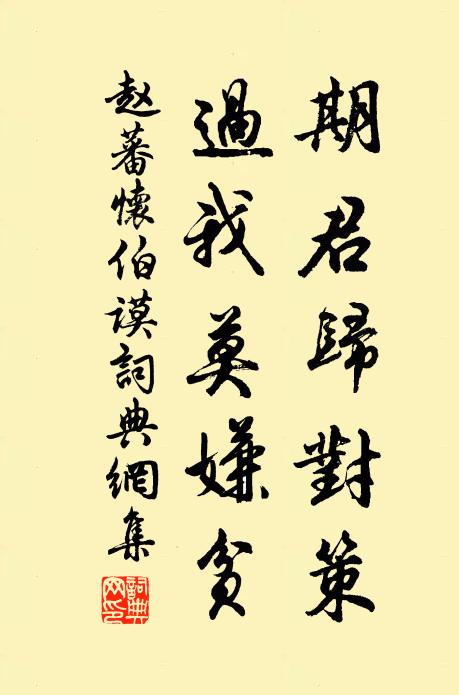 期君歸對策
過我莫嫌貧
赵蕃懷伯謨詞典網集
詞典网印